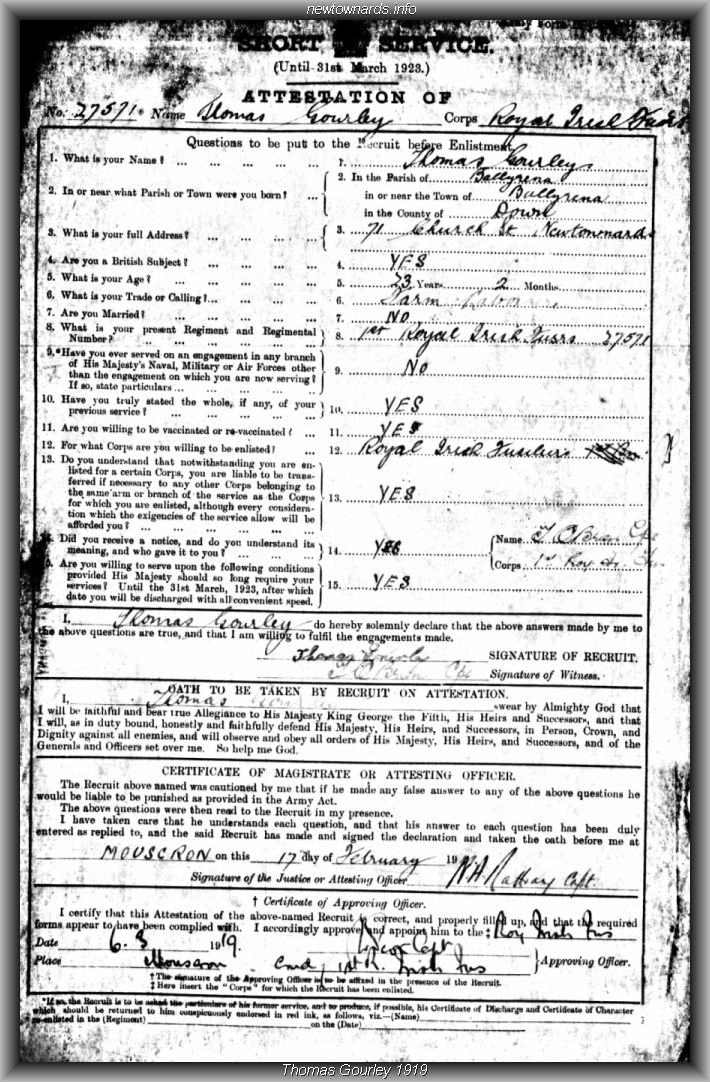 newtownards.info
SHORT SERVICE.
(Until 31st March 1923.)
ATTESTATION OF
No. 27571 Name Thomas Gourley Corps Royal Irish Fusrs
Questions to be put to the Recruit before Enlistment.
1. What is your Name? ... 1. Thomas Gourley
2. In or near what Parish or Town were you born? ... 2. In the Parish of Ballyrena
in or near the Town of Ballyrena
in the County of Down
3. What is your full Address? ... 3. 71 Church St Newtownards
4. Are you a British Subject? ... 4. YES
5. What is your Age? ... 5. 23 Years 2 Months
6. What is your Trade or Calling?... 6. Farm Labourer
7. Are you Married? ... 7. NO
8. What is your present Regiment and Regimental
Number? ... 8. 1st Royal Irish Fusrs 27571
9.*Have you ever served on an engagement in any branch
of His Majesty's Naval, Military or Air Forces other
than the engagement on which you are now serving?
If so, state particulars ... 9. No
10. Have you truly stated the whole, if any, of your
previous service? ... 10. YES
11. Are you willing to be vaccinated or re-vaccinated? ... 11. YES
12. For what Corps are you willing to be enlisted? ... 12. Royal Irish Fusiliers
13. Do you understand that notwithstanding you are en-
listed for a certain Corps, you are liable to be trans-
ferred if necessary to any other Corps belonging to
the same arm or branch of the service as the Corps
for which you are enlisted, although every considera-
tion which the exigencies of the service allow will be
afforded you? ... 13. YES
Did you receive a notice, and do you understand its
meaning, and who gave it to you? ... 14. YES Name T O'Brien Cpl
Corps 1st Roy Ir Fus
Are you willing to serve upon the following conditions
provided His Majesty should so long require your
services? Until the 31st March, 1923, after which
date you will be discharged with all convenient speed. 15. YES
I, Thomas Gourley do hereby solemnly declare that the above answers made by me to
the above questions are true, and that I am willing to fulfil the engagements made.
Thomas Gourley SIGNATURE OF RECRUIT.
T O'Brien Cpl Signature of Witness.
OATH TO BE TAKEN BY RECRUIT ON ATTESTATION.
I, Thomas Gourley swear by Almighty God that
I will be faithful and bear true Allegiance to His Majesty King George the Fifth, His Heirs and Successors, and that
I will, as in duty bound, honestly and faithfully defend His Majesty, His Heirs, and Successors, in Person, Crown, and
Dignity against all enemies, and will observe and obey all orders of His Majesty, His Heirs, and Successors, and of the
Generals and Officers set over me. So help me God.
CERTIFICATE OF MAGISTRATE OR ATTESTING OFFICER.
The Recruit above named was cautioned by me that if he made any false answer to any of the above questions he
would be liable to be punished as provided in the Army Act.
The above questions were then read to the Recruit in my presence.
I have taken care that he understands each question, and that his answer to each question has been duly
entered as replied to, and the said Recruit has made and signed the declaration and taken the oath before me at
MOUSCRON on this 17 day of February 19
Signature of the Justice or Attesting Officer Capt.
† Certificate of Approving Officer.
I certify that this Attestation of the above-named Recruit is correct, and properly filled up, and that the required
forms appear to have been complied with. I accordingly approve and appoint him to the ‡ Roy Irish Fus
Date 6.3 1919. Capt
Place Mouscron Cmdg 1st R. Irish Fus Approving Officer.
† The signature of the Approving Officer is to be affixed in the presence of the Recruit.
‡ Here insert the "Corps" for which the Recruit has been enlisted.
*If so, the Recruit is to be asked the particulars of his former service, and to produce, if possible, his Certificate of Discharge and Certificate of Character
which should be returned to him conspicuously endorsed in red ink, as follows, viz.—(Name)
re-enlisted in the (Regiment) on the (Date)
Thomas Gourley 1919